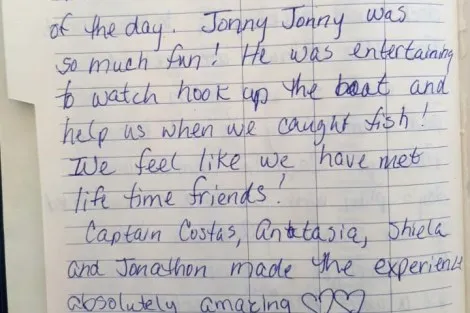 of the day. Jonny Jonny was
so much fun! He was entertaining
to watch hook up the boat and
help us when we caught fish!
We feel like we have met
life time friends!
Captain Costas, Anatasia, Shiela
and Jonathon made the experience
absolutely amazing ♡♡